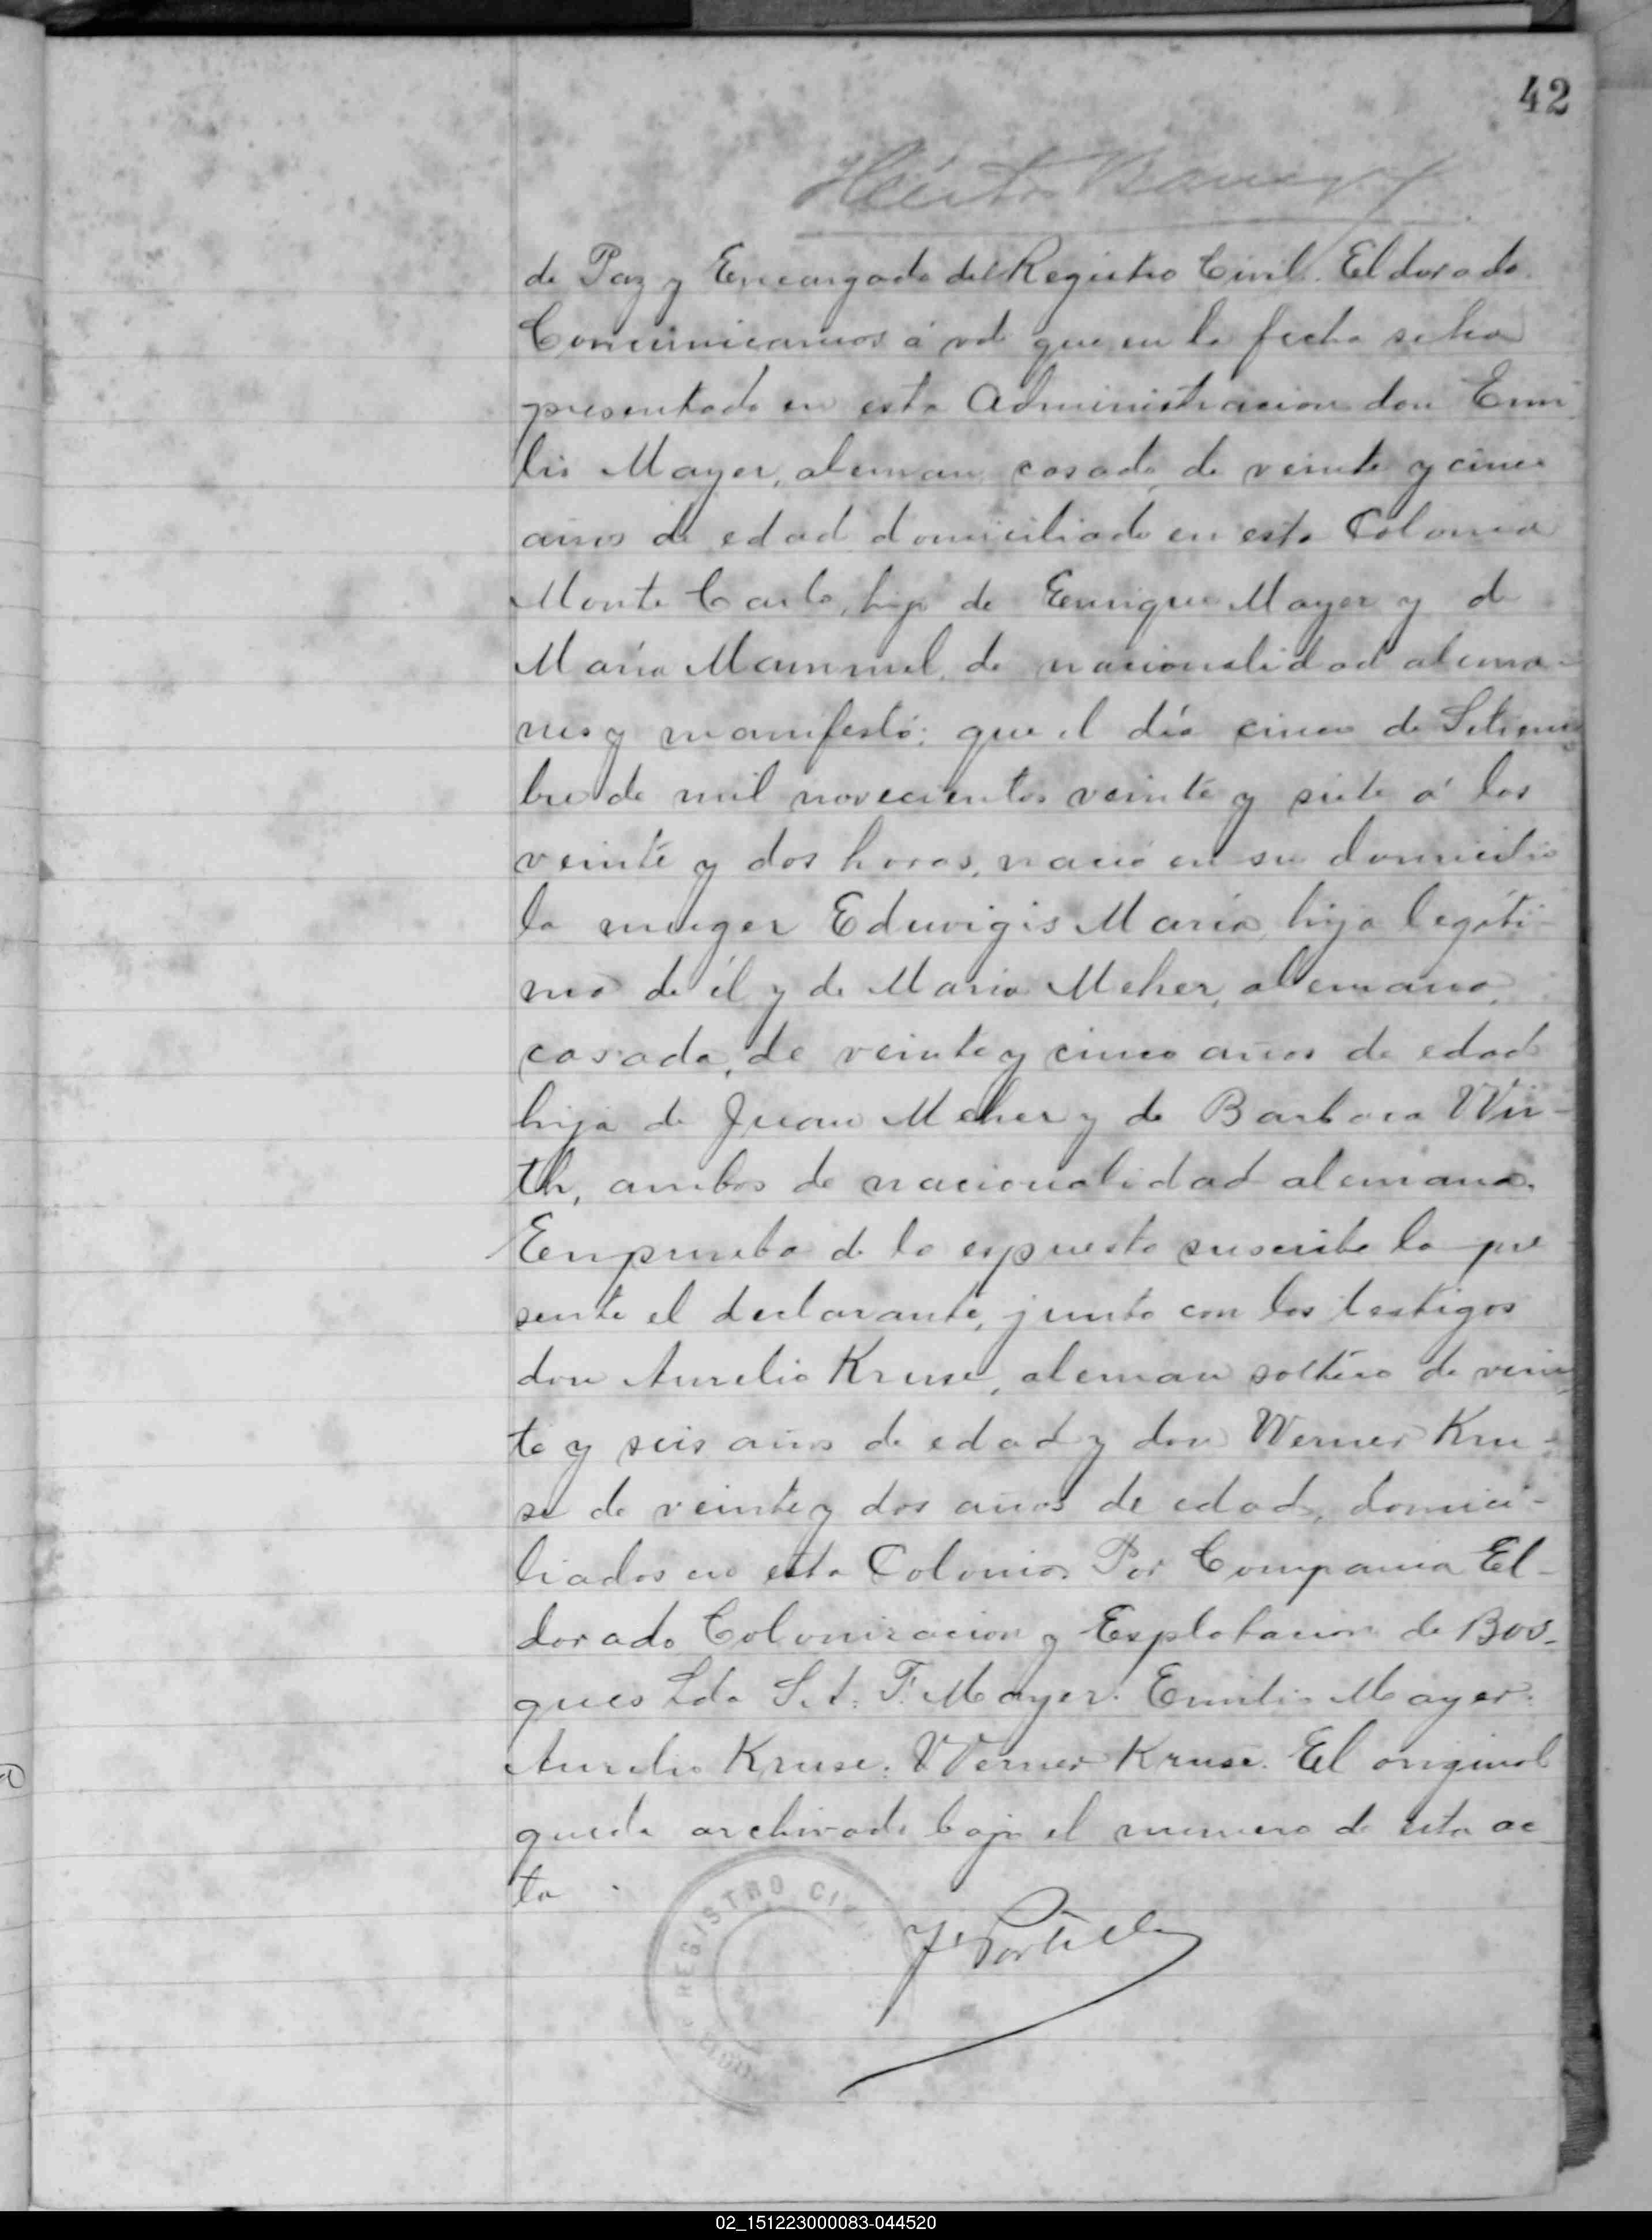 42
de Paz y Encargado del Registro Civil. Eldorado.
Comunicamos á vd que en la fecha se ha
presentado en esta Administracion don Emi
lio Mayer, aleman casado, de veinte y cinco
años de edad domiciliado en esta Colonia
Monte Carlo, hijo de Enrique Mayer y de
María Mammel, de nacionalidad alema-
nes y manifestó: que el día cinco de Setiem
bre de mil novecientos veinte y siete á las
veinte y dos horas, nació en su domicilio
la muger Eduvigis María, hija legíti-
ma de él y de Maria Meher, alemana,
casada, de veinte y cinco años de edad
hija de Juan Meher y de Barbara Wir-
th, ambos de nacionalidad alemana.
En prueba de lo espuesto suscribe la pre
sente el declarante, junto con los testigos
don Aurelio Kruse, aleman soltero de vein
te y seis años de edad y don Werner Kru-
se de veinte y dos años de edad, domici-
liados en esta Colonia. Por Compania El-
dorado Colonizacion y Explotacion de Bos-
ques Lda S.A. F. Mayer. Emilio Mayer.
Aurelio Kruse. Werner Kruse. El original
queda archivado bajo el numero de esta ac
ta.
REGISTRO CIVIL
02_151223000083-044520